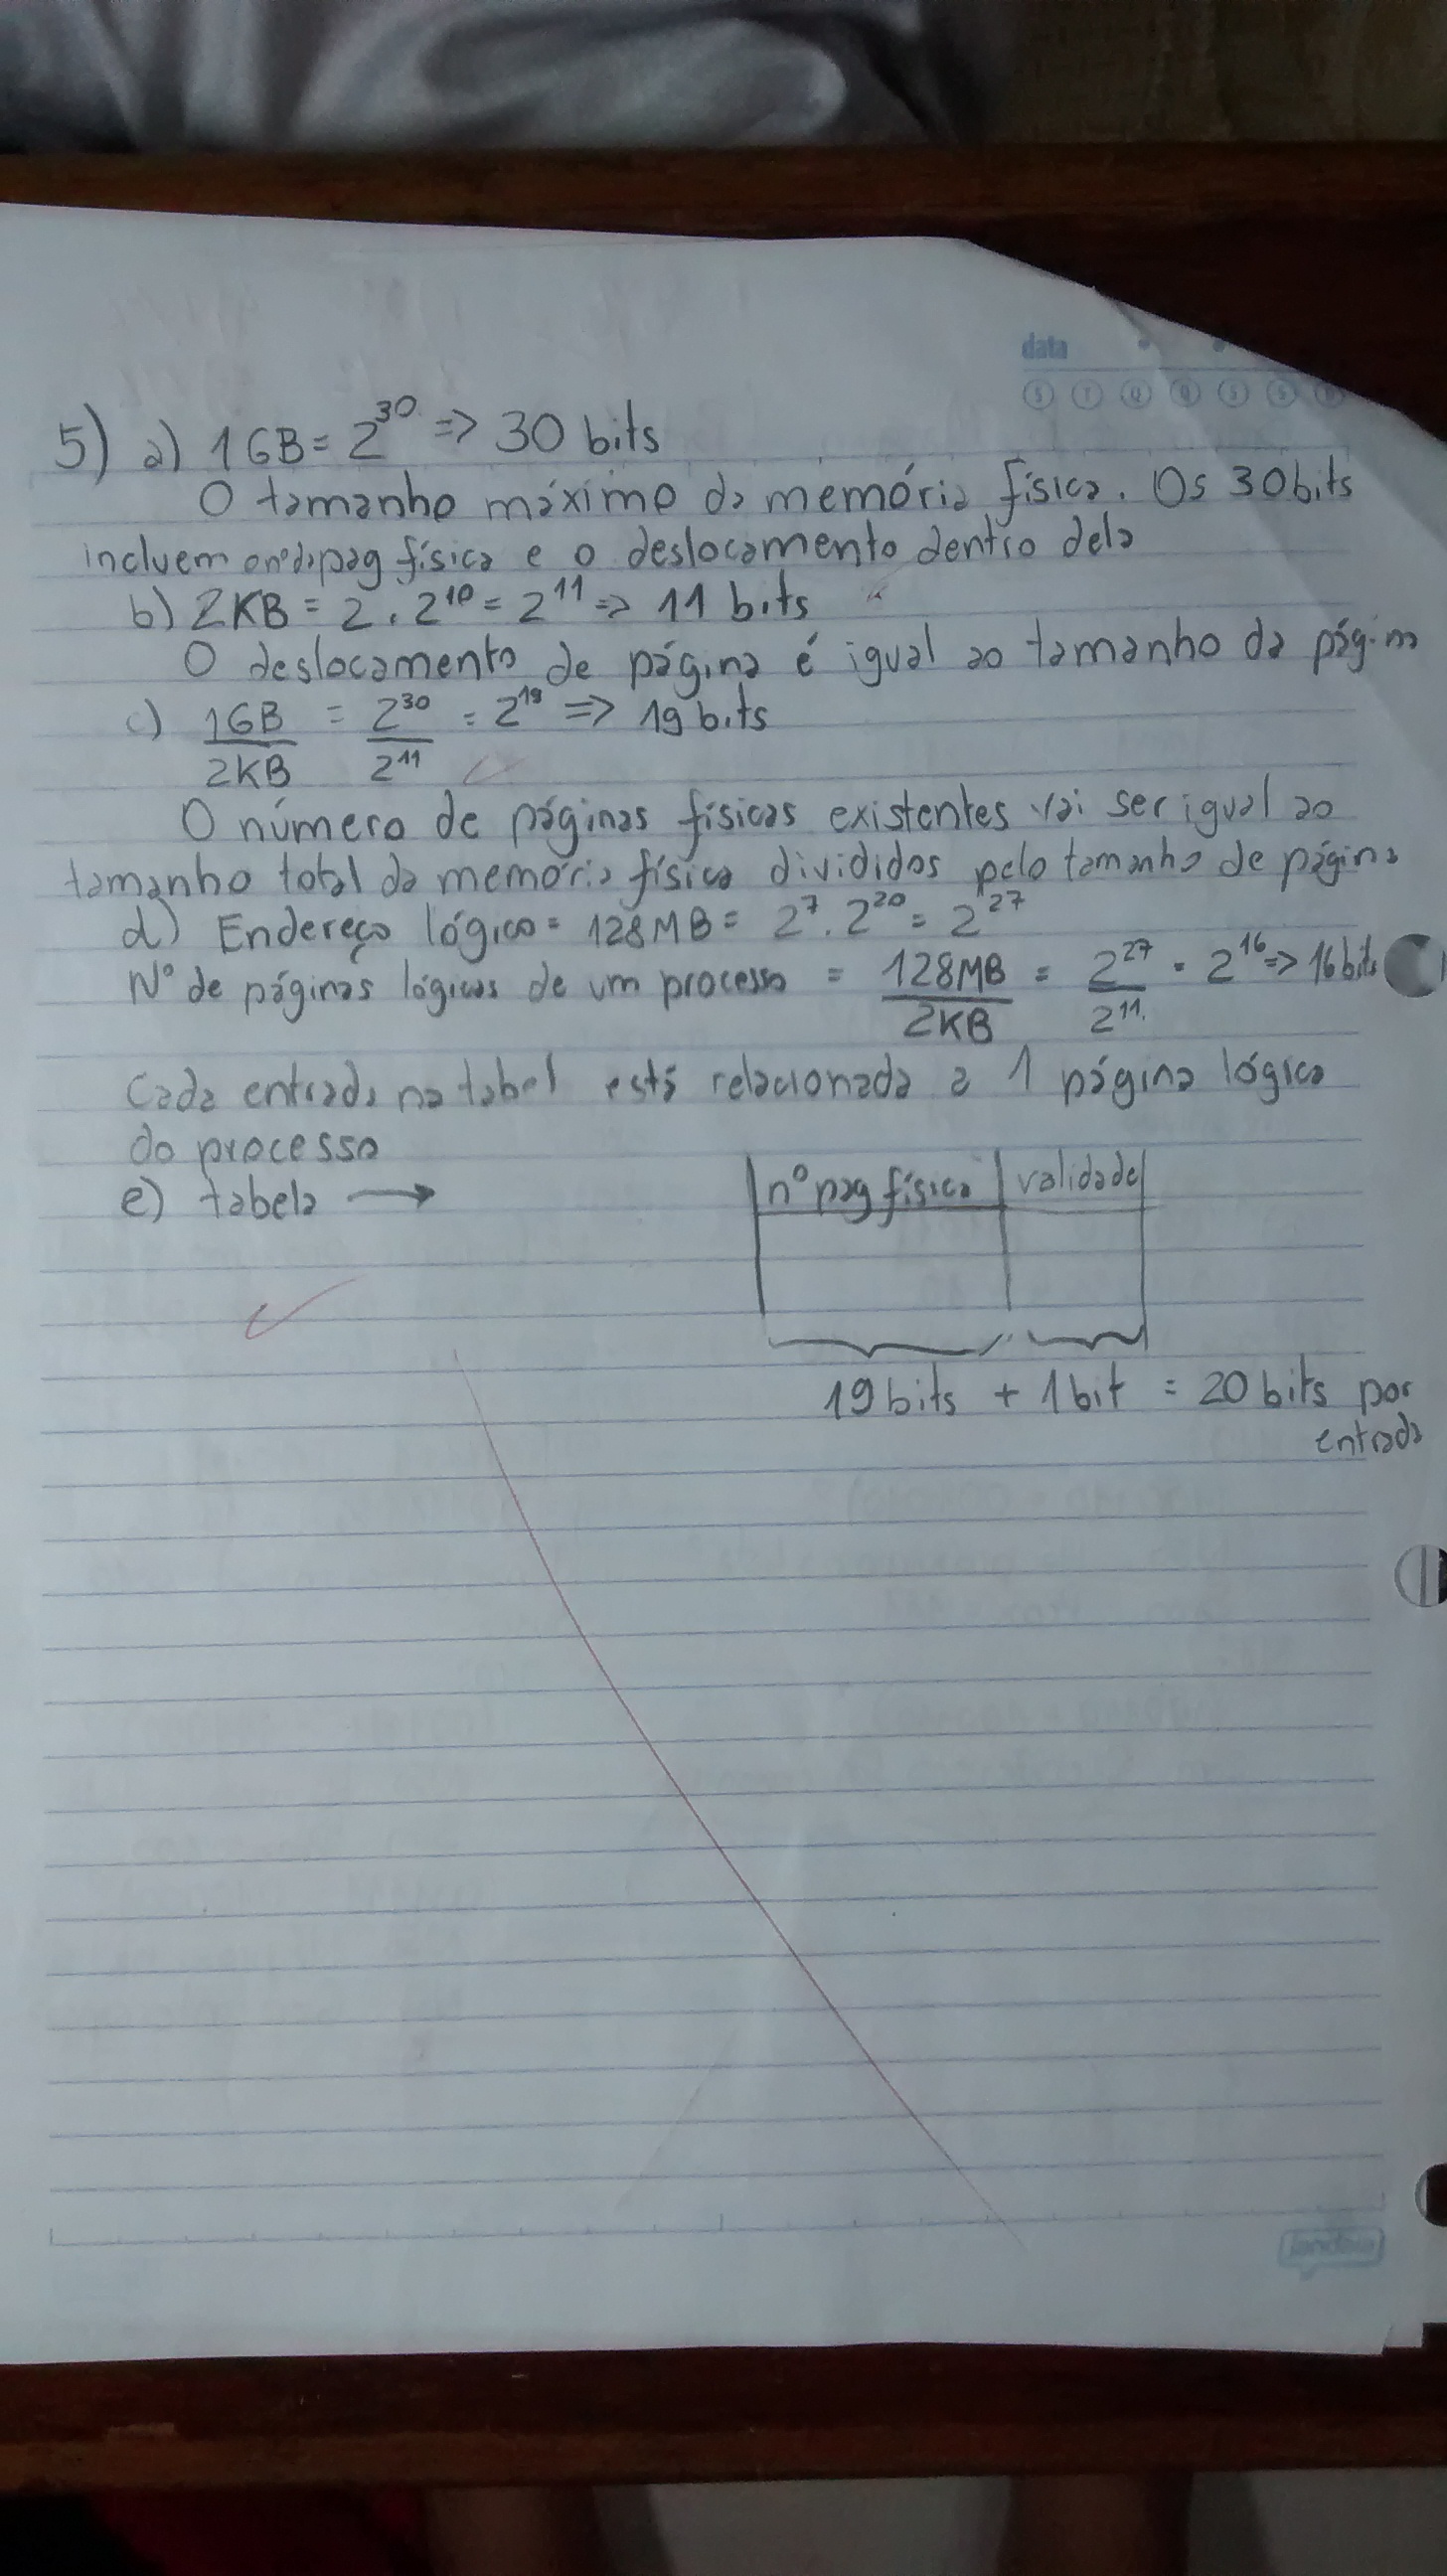 data
S T Q Q S S D
5) a) 1GB = 2^30 => 30 bits
O tamanho máximo da memória física. Os 30 bits
incluem o nº da pag física e o deslocamento dentro dela
b) 2KB = 2 . 2^10 = 2^11 => 11 bits
O deslocamento de página é igual ao tamanho da página
c) 1GB / 2KB = 2^30 / 2^11 = 2^19 => 19 bits
O número de páginas físicas existentes vai ser igual ao
tamanho total da memória física divididos pelo tamanho de página
d) Endereço lógico = 128MB = 2^7 . 2^20 = 2^27
Nº de páginas lógicas de um processo = 128MB / 2KB = 2^27 / 2^11 = 2^16 => 16 bits
Cada entrada na tabel está relacionada a 1 página lógica
do processo
e) tabela →
nº pag física | validade
19 bits + 1 bit = 20 bits por
entrada
jandaia